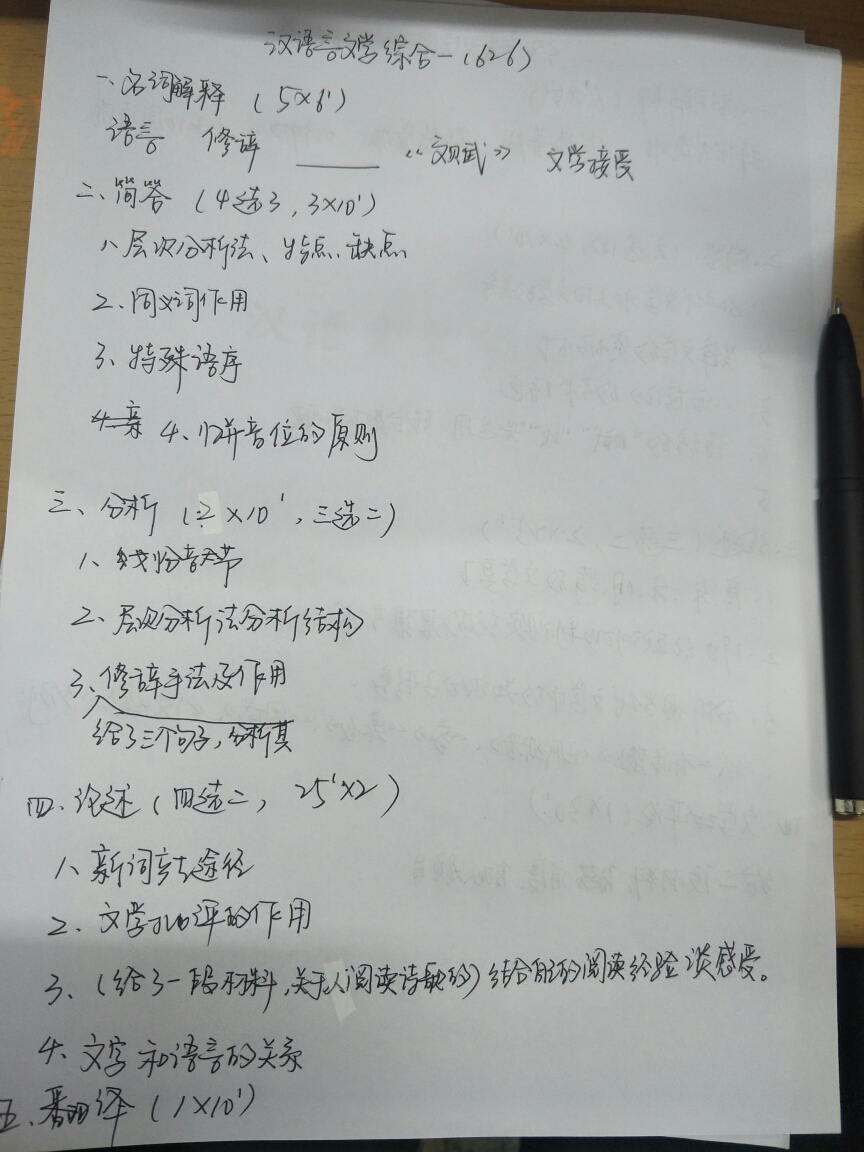 汉语言文学综合一(626)
一、名词解释 (5×6')
语言 修辞 ______ 《文赋》 文学接受
二、简答 (4选3, 3×10')
1、层次分析法、特点、缺点
2、同义词作用
3、特殊语序
4、归并音位的原则
三、分析 (2×10', 三选二)
1、划分音节
2、层次分析法分析结构
3、修辞手法及作用
给了三个句子,分析其
四、论述 (四选二, 25'×2)
1、新词产生途径
2、文学批评的作用
3、(给了一段材料,关于人阅读诗歌的)结合自己的阅读经验谈感受。
4、文字和语言的关系
五、翻译 (1×10')